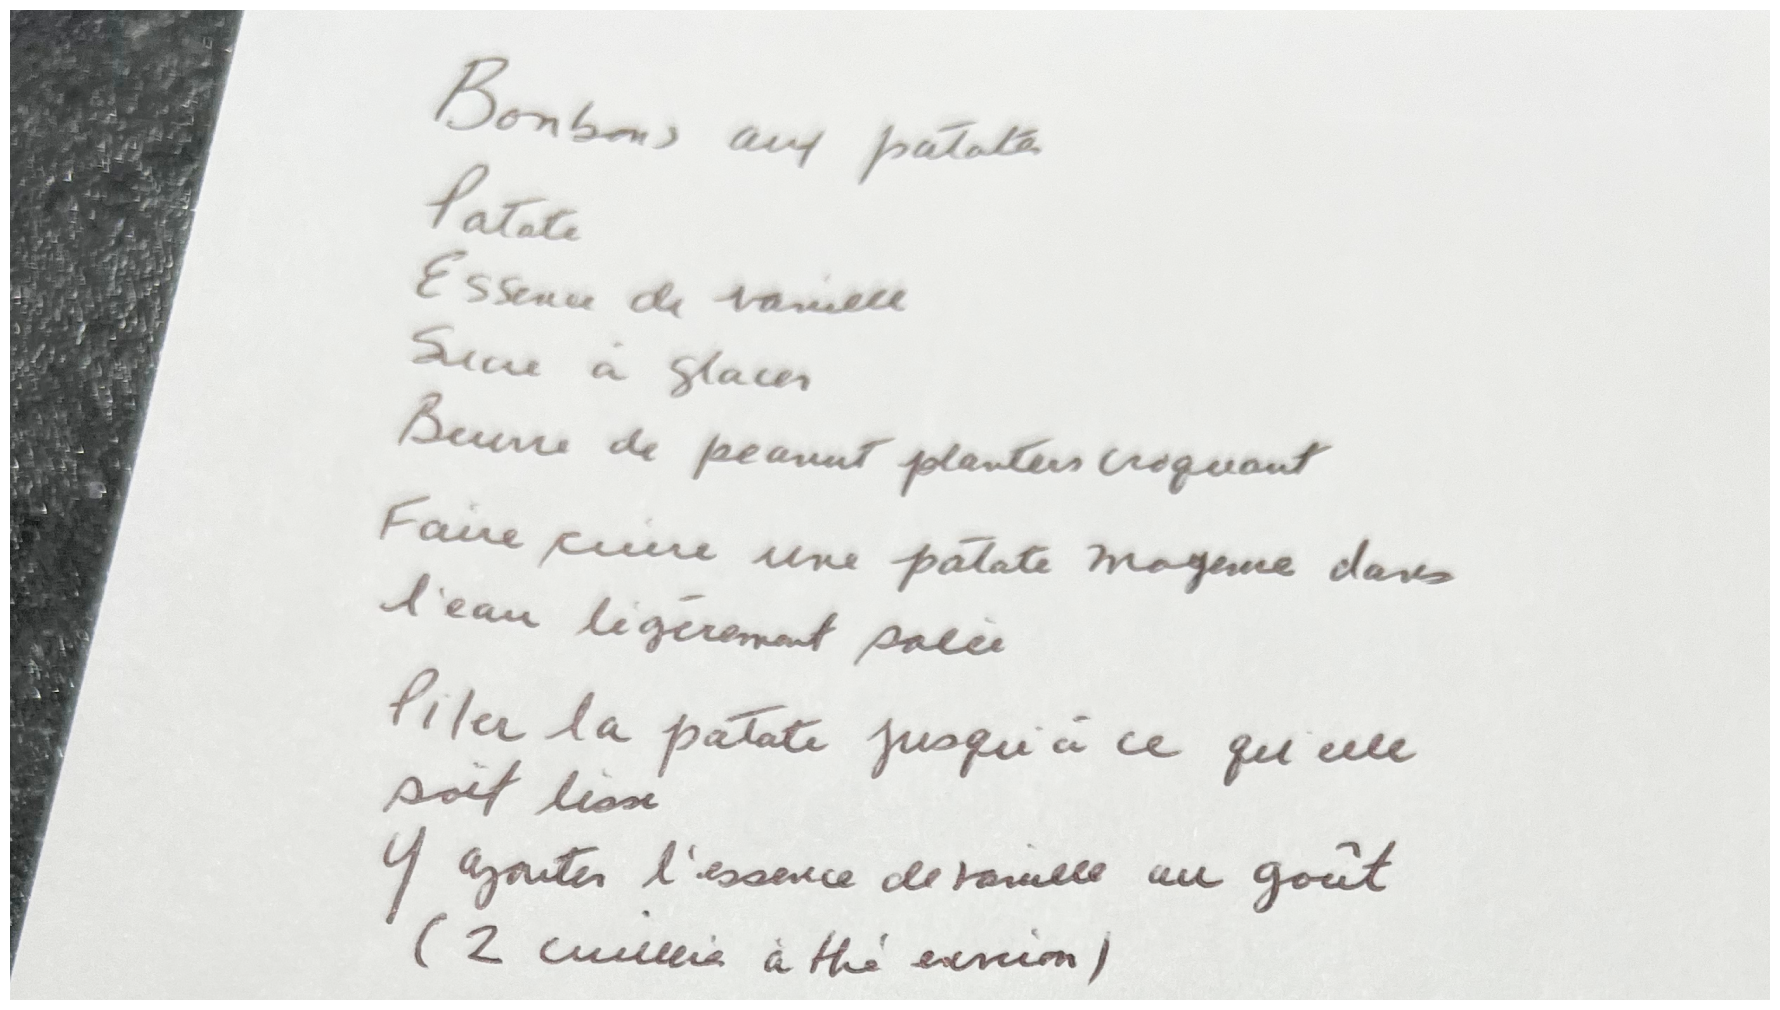 Bonbons aux patates
Patate
Essence de vanille
Sucre à glacer
Beurre de peanut planters croquant
Faire cuire une patate moyenne dans
l'eau légèrement salée
Piler la patate jusqu'à ce qu'elle
soit lisse
Y ajouter l'essence de vanille au goût
(2 cuillère à thé environ)